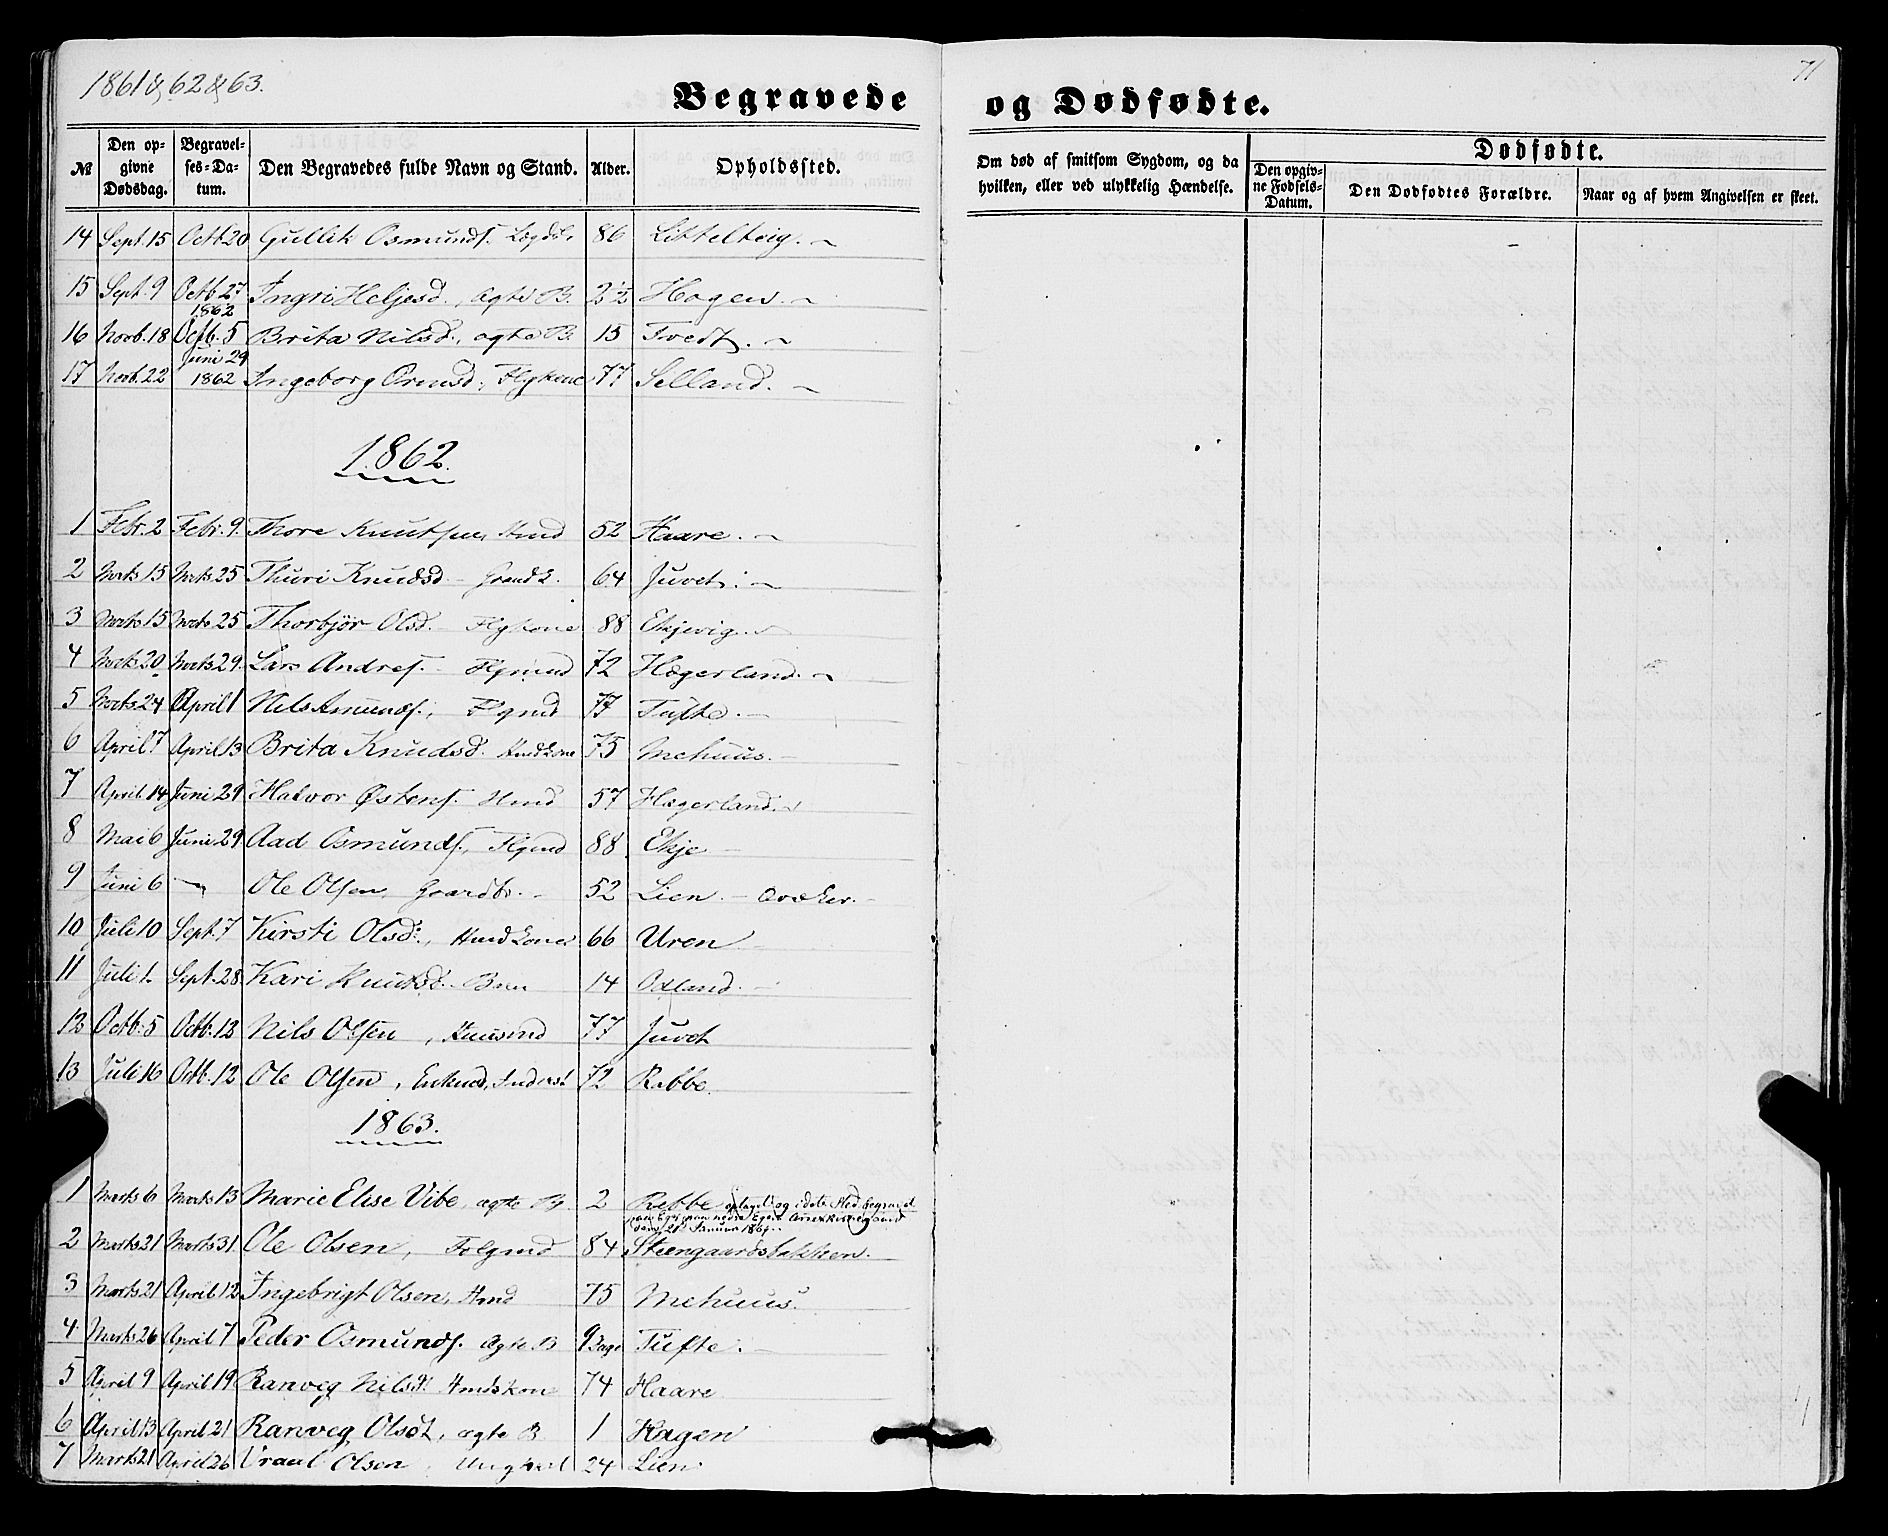 1861 & 62 & 63.
71
Begravede
og Dødfødte.
№
Den op-
givne
Dødsdag.
Begravel-
ses-Da-
tum.
Den Begravedes fulde Navn og Stand.
Alder.
Opholdssted.
Om død af smitsom Sygdom, og da
hvilken, eller ved ulykkelig Hændelse.
Dødfødte.
Den opgiv-
ne Fødsels-
Datum.
Den Dødfødtes Forældre.
Naar og af hvem Angivelsen er skeet.
14 Sept. 15 Octb 20 Gullik Osmunds. Lægdsl. 86
15 Sept. 9 Octb 27 Ingri Heljesd., ægte B. 2½ Hagen
16 Novb. 18 1862 Octb. 5 Brita Nilsd., ægte B. 15 Tvedt.
17 Novb. 22 Juni 29 1862 Ingeborg Ormsd., Flgkone 77 Selland.
1862.
1 Febr. 2 Febr. 9. Thore Knutsen, Hmd 52 Haare.
2 Marts 15 Marts 25 Thuri Knudsd. 64 Juvet.
3 Marts 15 Marts 25 Thorbjør Olsd. Flgkone 88 Ekjevig.
4 Marts 20 Marts 29. Lars Andres. Flgmd 72 Hægerland.
5 Marts 24 April 1 Nils Amunds., Flgmd 77 Tufte.
6 April 7 April 13 Brita Knudsd. Hmdkone 75 Mehuus.
7 April 14 Juni 29 Halvor Østens. Hmd 57 Hægerland.
8 Mai 6 Juni 29 Aad Osmunds., Flgmd 88 Ekje
9 Juni 6 Ole Olsen, Gaardbr. 52 Lien.
10 Juli 10 Sept. 7 Kirsti Olsd., Hmdkone 66 Uren
11 Juli 1. Sept. 28. Kari Knutsd. Barn 14 Odland.
12 Octb. 5 Octb. 12 Nils Olsen, Huusmd 77 Juvet
13 Juli 16 Octb. 12 Ole Olsen, Enkmd, Inderst 72 Rabbe.
1863.
1 Marts 6 Marts 13 Marie Elise Vibe, ægte B. 2 Rebbe
2 Marts 21 Marts 31 Ole Olsen, Folgmd 84 Steengaardsbakken.
3 Marts 21 April 12 Ingebrigt Olsen, Hmd 75 Mehuus.
4 Marts 26 April 7 Peder Osmunds. ægte B 9 Dage Tufte.
5 April 9 April 19 Ranveg Nilsd. Hmdskone 74 Haare
6 April 13 April 21 Ranveg Olsd., ægte B 1 Hagen
7 Marts 21 April 26 Olsen, Ungkarl 24 Lien